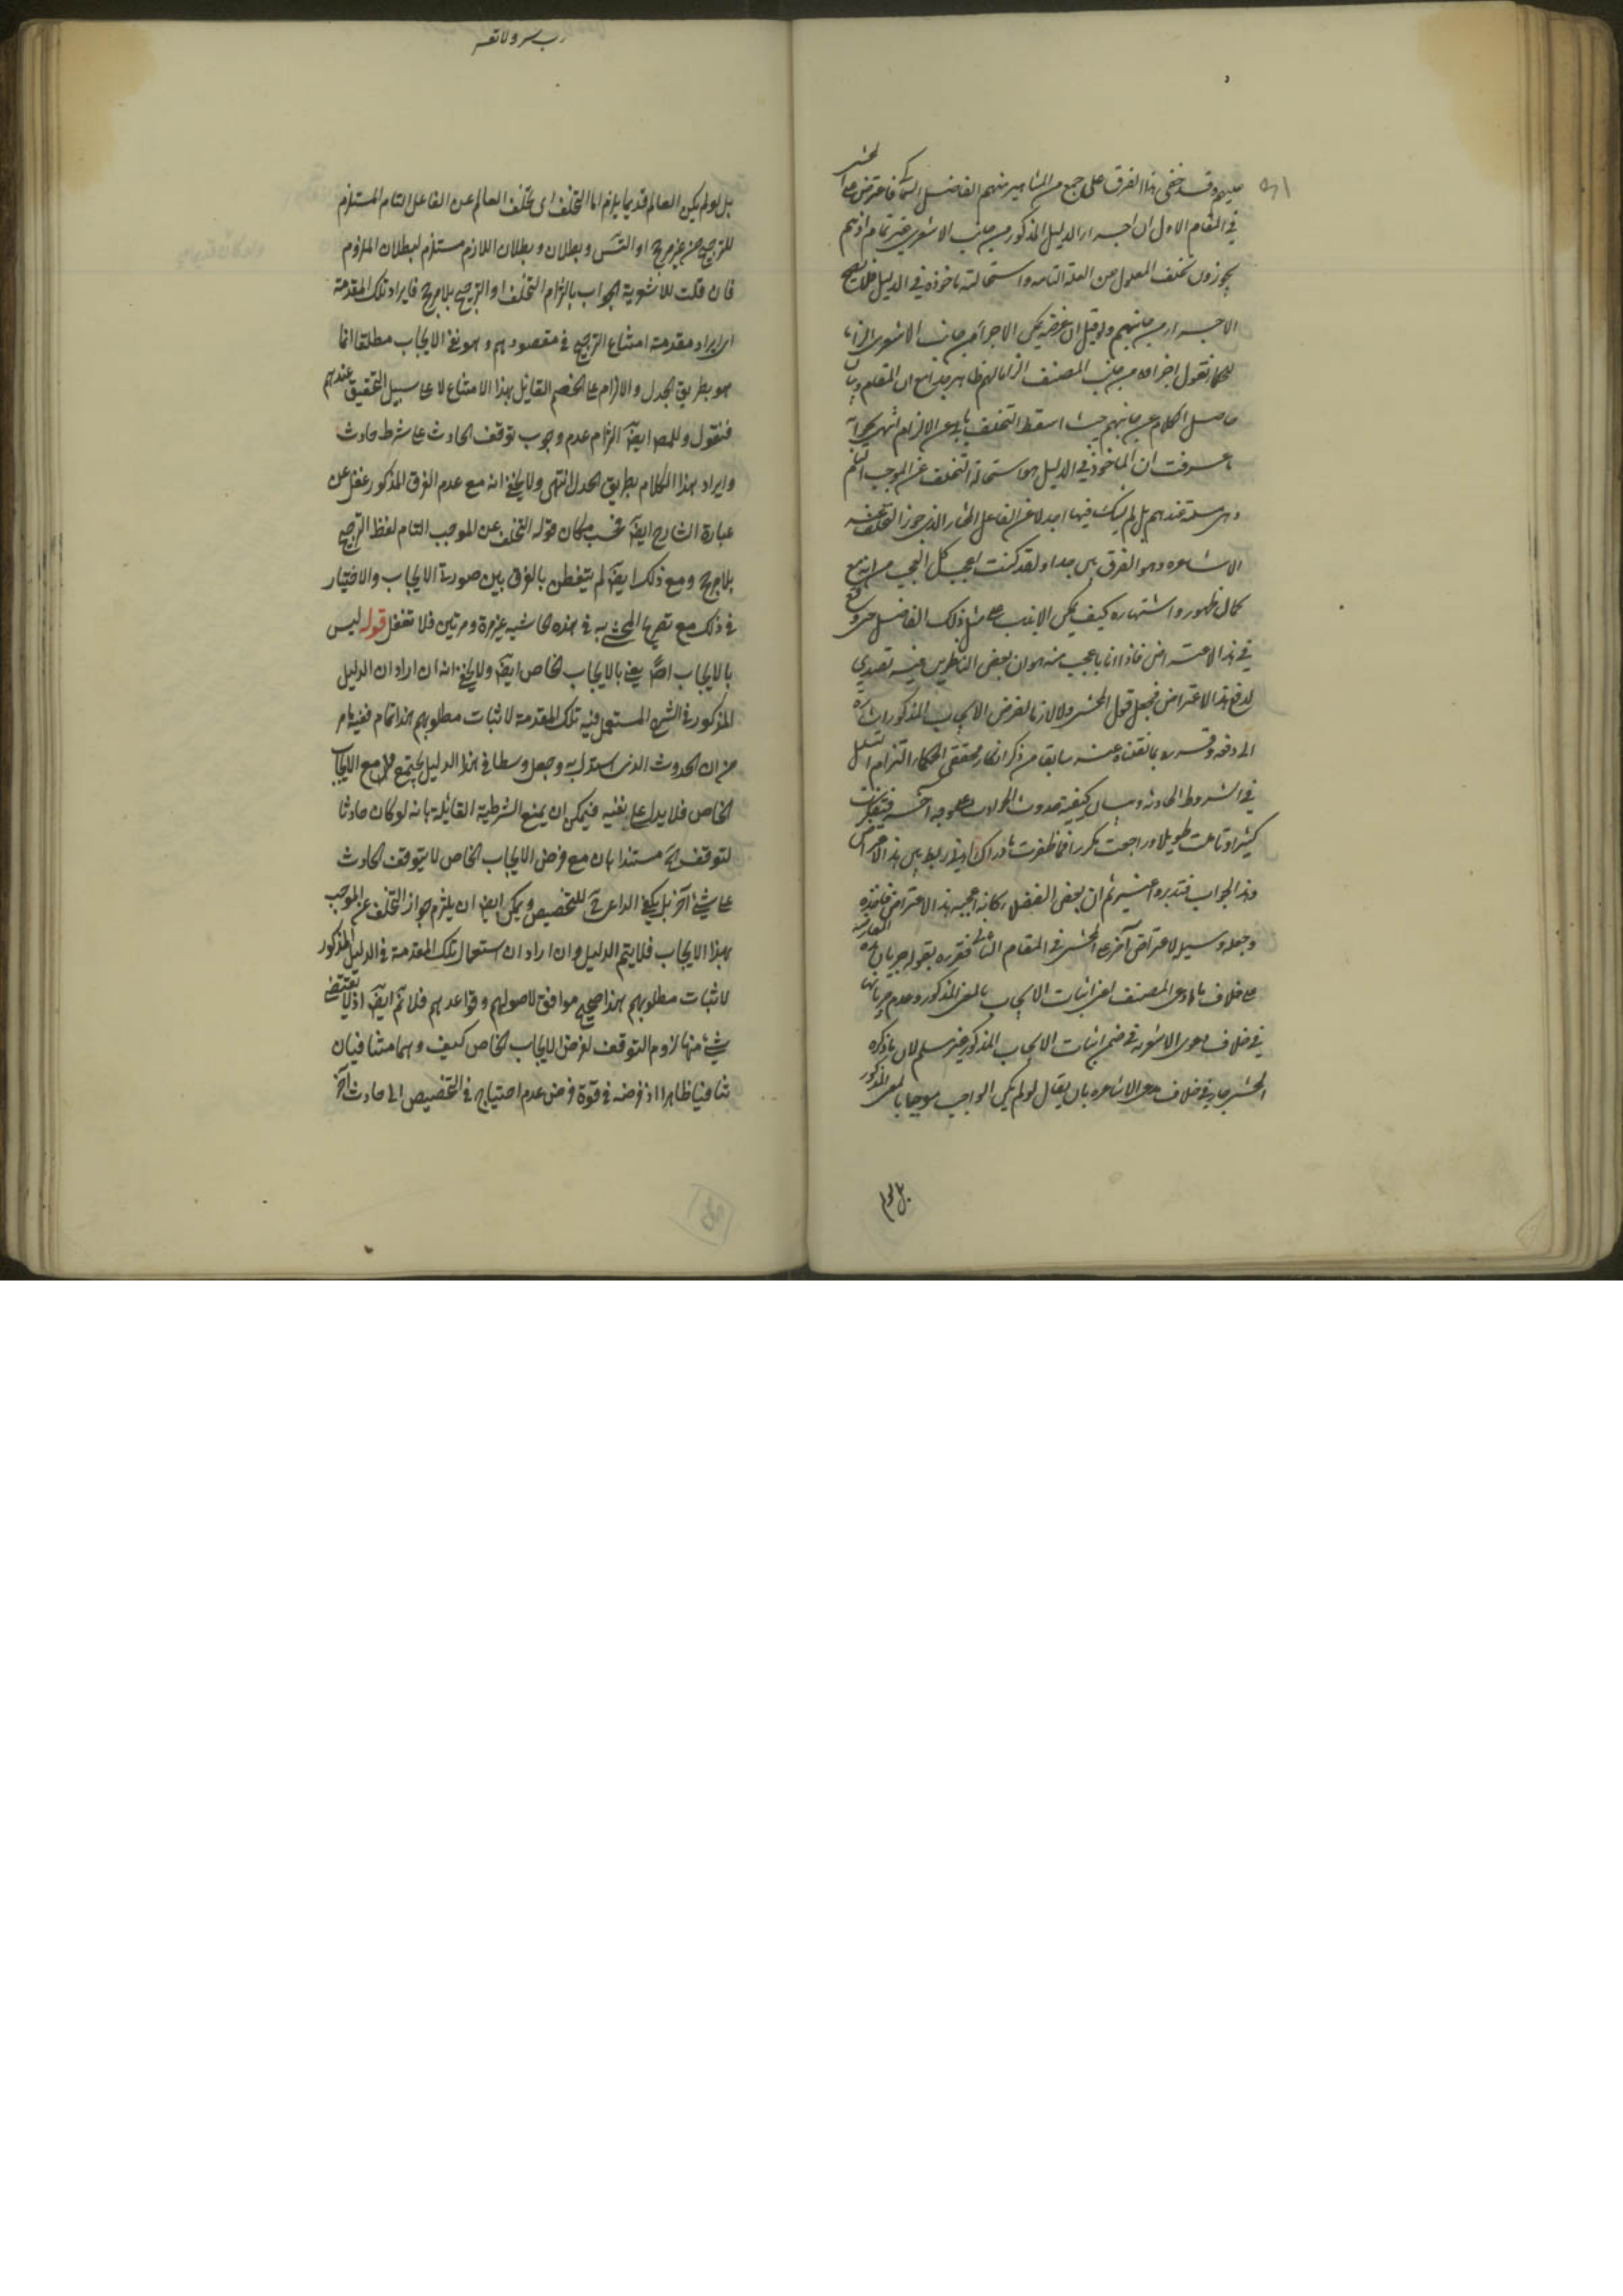 عليه وقد خفى هذا الفرق على جمع من المشاهير منهم الفاضل فاعترض على المحشى
في المقام الاول ان اجراء الدليل المذكور من جانب الاشعرى غير تمام اذ هم
يجوزون تخلف المعلول عن العلة التامه واستحالته ماخوذة في الدليل فلا يصح
الاجراء من جانبهم ولو قيل ان غرضه يمكن الاجراء من جانب الاشعرى الزاما
للحكما نقول اجراءه من جانب المصنف الزاما لهم ظاهر
حاصل الكلام من جانبهم حيث اسقط التخلف الالزام انتهى
ما عرفت ان الماخوذ في الدليل هو استحالة التخلف عن الموجب التام
وهى مسلمة عندهم بل لم يشك فيها احد لا عن الفاعل المختار الذى جوز التخلف عنه
الاشاعره وهو الفرق بين جدا ولقد كنت اعجب كل العجب من انه مع
كمال ظهوره واشتهاره كيف يمكن على مثل ذلك الفاضل حتى وقع
في هذا الاعتراض فاذا انا باعجب منه هو ان بعض الناظرين فيه تصدى
لدفع هذا الاعتراض فجعل قول المحشى ولا لازما لفرض الايجاب المذكور اشارة
الى دفعه وقرره بما نقلناه عنه سابقا من ذكر انكار محققى الحكماء التزام التسلسل
في الشروط الحادثه وبيان كيفية حدوث الحوادث على وجه اخر فتفكرت
كثيرا وتاملت طويلا وراجعت مكررا فما ظفرت بادراك ربط بين هذا الاعتراض
وهذا الجواب فتدبر واعتبر ثم ان بعض الفضلاء كانه اعجبه هذا الاعتراض فاخذه
وجعله وسيلة لاعتراض آخر على المحشى في المقام الثانى فقرره بقوله جريان هذه المعارضة
على خلاف ما ادعى المصنف اعنى اثبات الايجاب بالمعنى المذكور وعدم جريانها
في خلاف دعوى الاشعرية في ضمن اثبات الايجاب المذكور غير مسلم لان ما ذكره
المحشى جار في خلاف مدعى الاشاعره بان يقال لو لم يكن الواجب موجبا بالمعنى المذكور
بل لو لم
رب يسر ولا تعسر
بل لو لم يكن العالم قديما يلزم اما التخلف اى تخلف العالم عن الفاعل التام المستلزم
للترجيح من غير مرجح او التسلسل وبطلان اللازم مستلزم لبطلان الملزوم
فان قلت للاشعرية الجواب بالزام التخلف او الترجيح بلا مرجح فايراد تلك المقدمة
اى ايراد مقدمة امتناع الترجيح في مقصودهم وهو نفى الايجاب مطلقا انما
هو بطريق الجدل والالزام على الخصم القائل بهذا الامتناع لا على سبيل التحقيق عندهم
فنقول وللمص ايض الزام عدم وجوب توقف الحادث على شرط حادث
وايراد هذا الكلام بطريق الجدل انتهى ولا يخفى انه مع عدم الفرق المذكور غفل عن
عبارة الشارح ايض فحسب مكان قوله التخلف عن الموجب التام لفظ الترجيح
بلا مرجح ومع ذلك ايض لم يتفطن بالفرق بين صورة الايجاب والاختيار
في ذلك مع تصريح المحشى به في هذه الحاشيه غير مرة ومرتين فلا تغفل قوله ليس
بالايجاب اصلا يعنى بالايجاب الخاص ايض ولا يخفى انه ان اراد ان الدليل
المذكور في الشرح المستعمل فيه تلك المقدمة لاثبات مطلوبهم هذا تمام ففيه ما مر
من ان الحدوث الذى استدل به وجعل وسطا في هذا الدليل يجتمع مع الايجاب
الخاص فلا يدل على نفيه فيمكن ان يمنع الشرطية القائلة بانه لو كان حادثا
لتوقف مستندا بان مع فرض الايجاب الخاص لا يتوقف الحادث
على شئ آخر بل يكفى الداعى للتخصيص ويمكن ايض ان يلزم جواز التخلف عن الموجب
بهذا الايجاب فلا يتم الدليل وان اراد ان استعمال تلك المقدمة في الدليل المذكور
لاثبات مطلوبهم هذا صحيح موافق لاصولهم وقواعدهم فلا تم ايض اذ لا يقتضى
شئ منها لزوم التوقف لفرض الايجاب الخاص كيف وهما متنافيان
تنافيا ظاهرا اذ فرضه في قوة فرض عدم احتياج في التخصيص الى حادث آخر